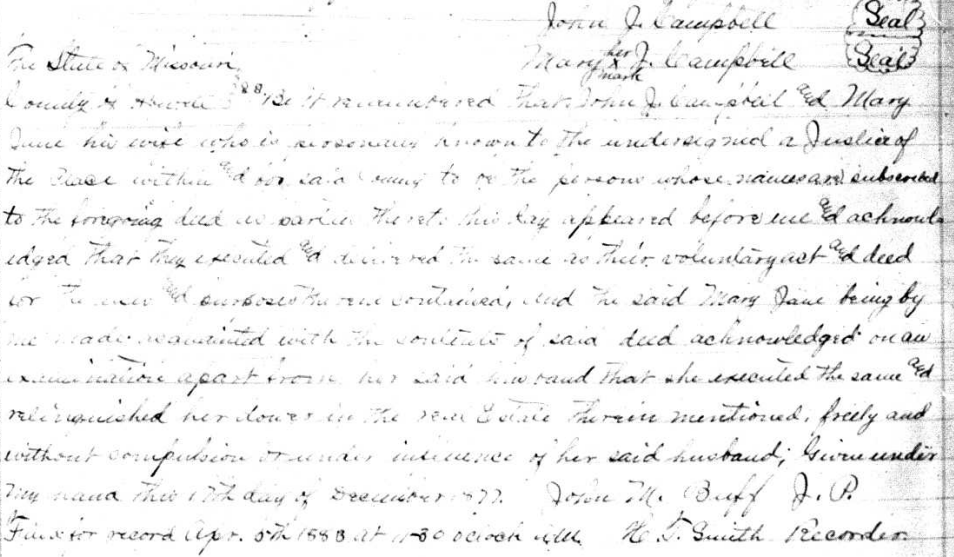 John J. Campbell Seal
Mary her x mark J. Campbell Seal
The State of Missouri
County of Howell ss Be it remembered that John J. Campbell and Mary
Jane his wife who is personally known to the undersigned a Justice of
the Peace within and for said County to be the persons whose names are subscribed
to the foregoing deed as parties thereto this day appeared before me and acknowl
edged that they executed and delivered the same as their voluntary act and deed
for the uses and purposes therein contained, and the said Mary Jane being by
me made acquainted with the contents of said deed acknowledged on an
examination apart from her said husband that she executed the same and
relinquished her dower in the real Estate therein mentioned, freely and
without compulsion or undue influence of her said husband; Given under
my hand this 17th day of December 1877. John M. Buff J. P.
Filed for record Apr. 5th 1883 at 30 oclock H. T. Smith Recorder.